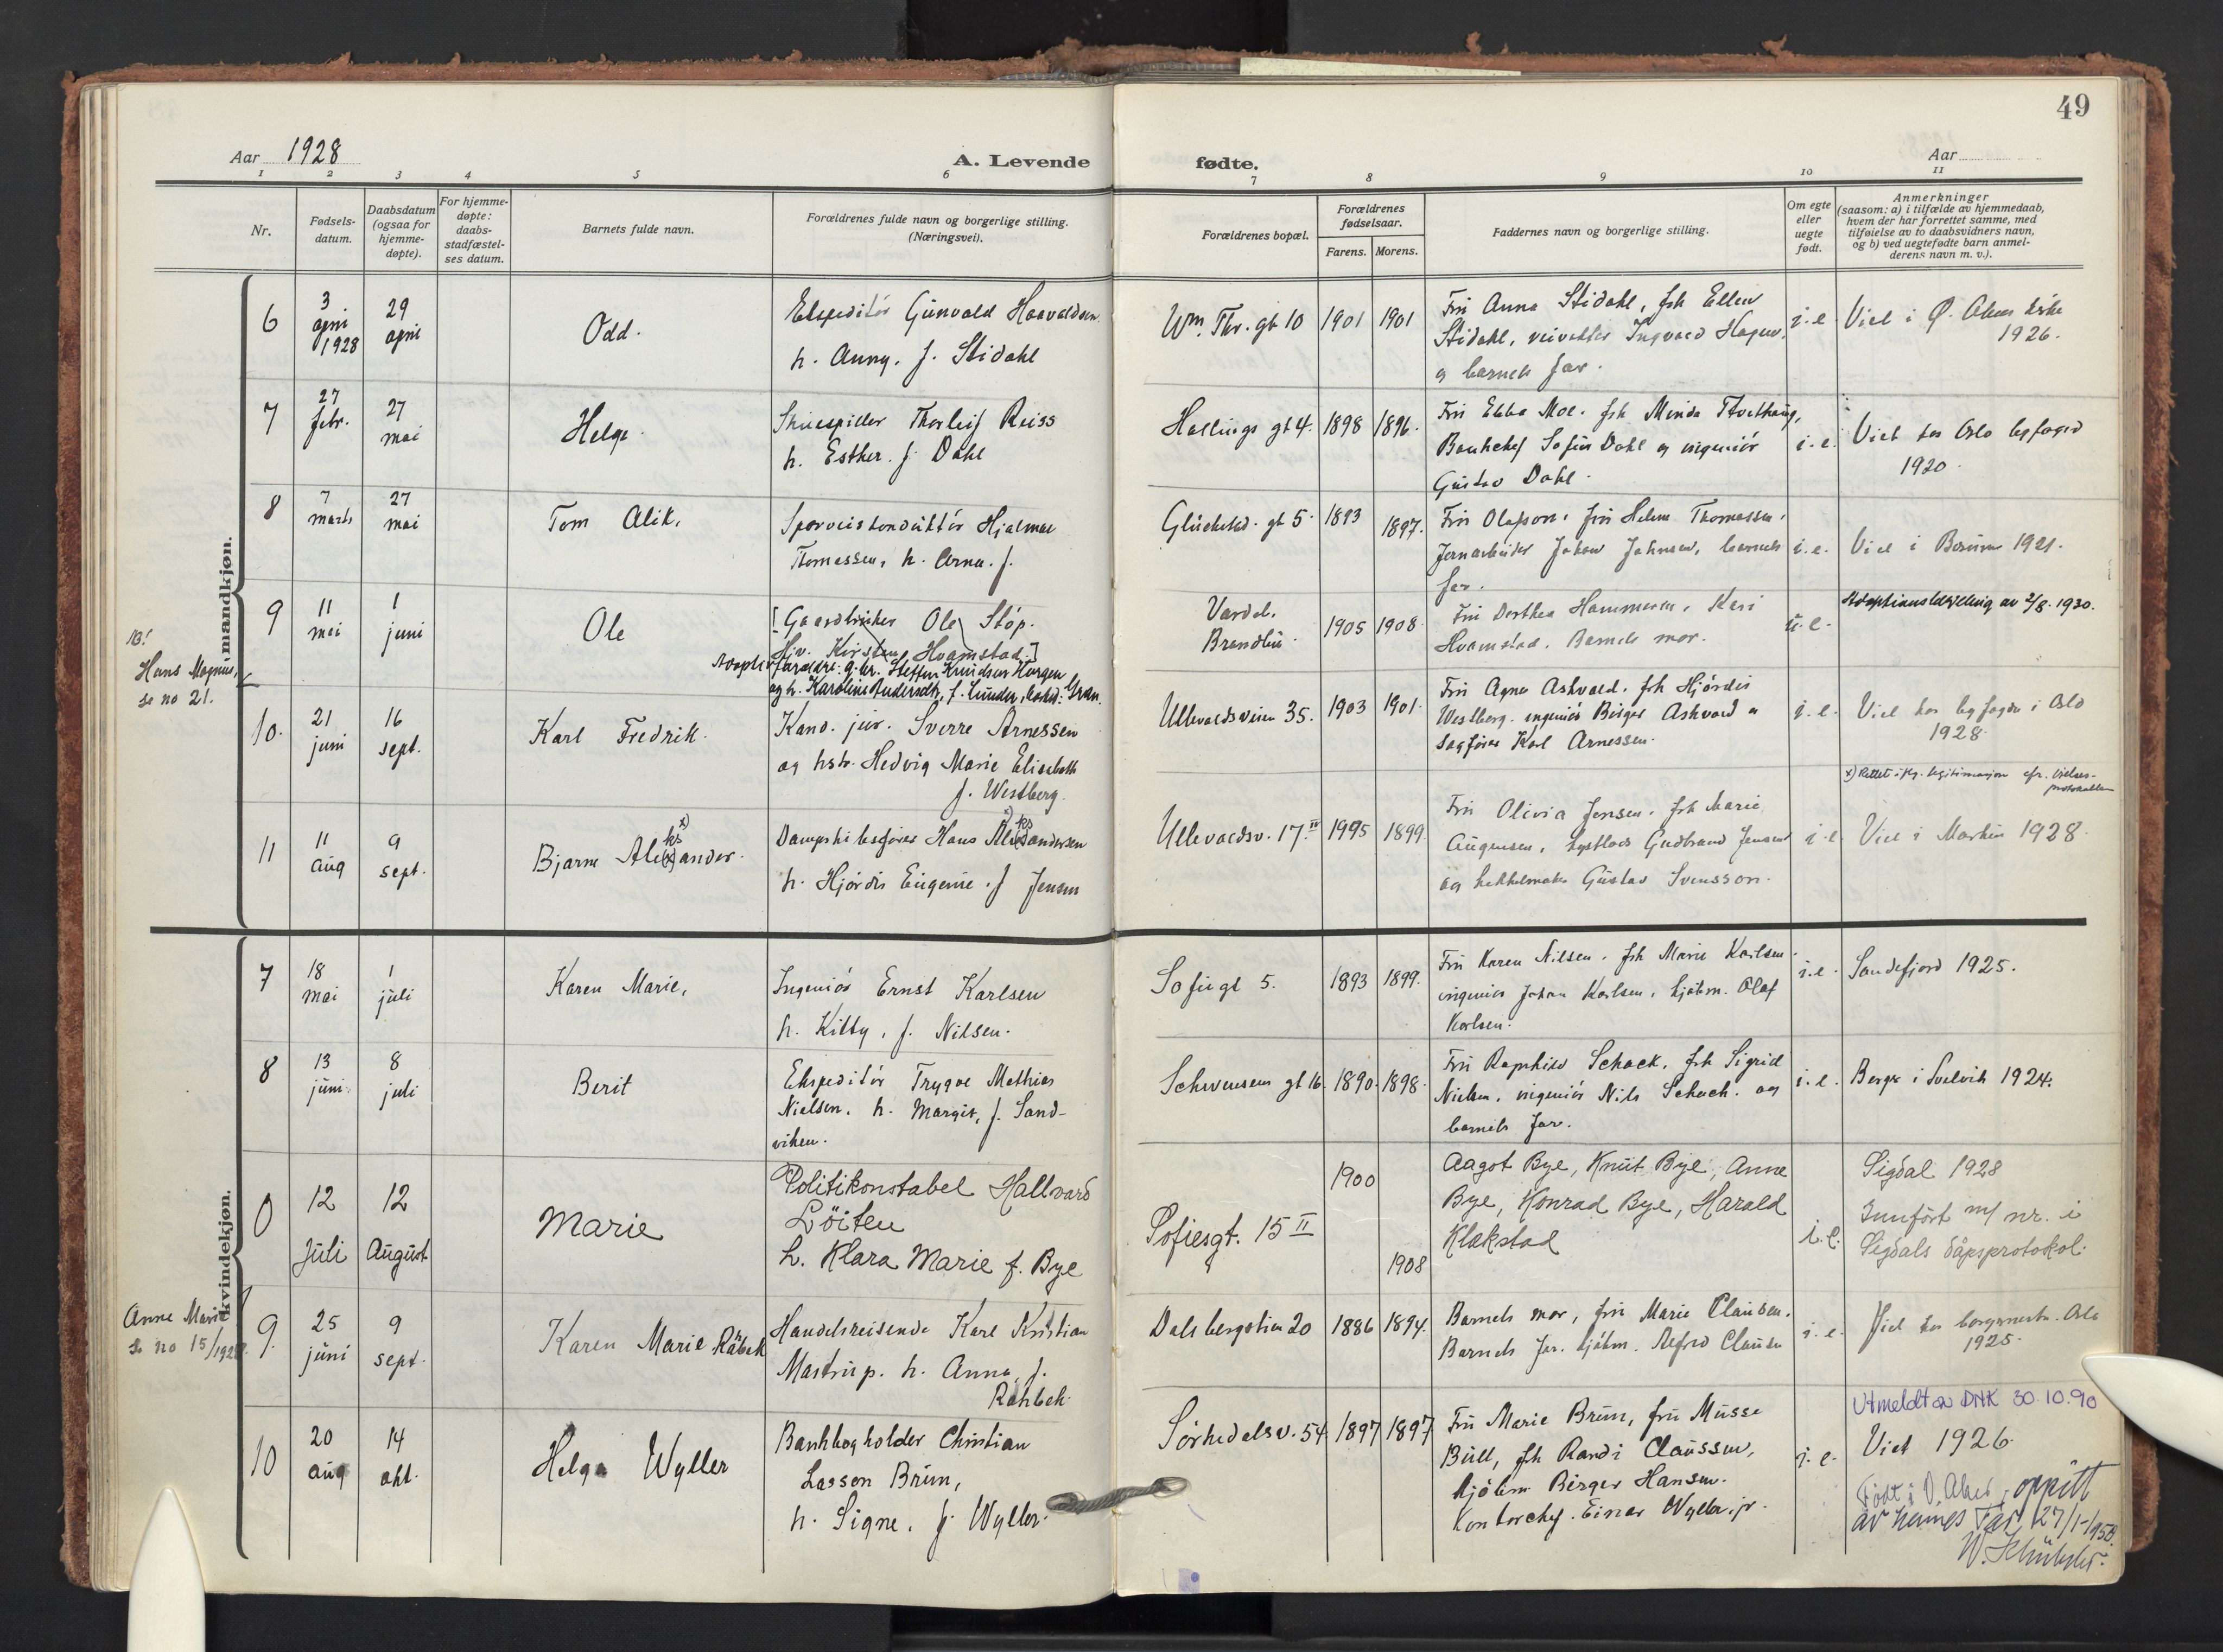 49
Aar 1928
A. Levende
fødte.
Aar
1 2 3 4 5 6 7 8 9 10 11
Nr.
Fødsels-
datum.
Daabsdatum
(ogsaa for
hjemme-
døpte).
For hjemme-
døpte:
daabs-
stadfæstel-
ses datum.
Barnets fulde navn.
Forældrenes fulde navn og borgerlige stilling.
(Næringsvei).
Forældrenes bopæl.
Forældrenes
fødselsaar.
Farens. Morens.
Faddernes navn og borgerlige stilling.
Om egte
eller
uegte
født.
Anmerkninger
(saasom: a) i tilfælde av hjemmedaab,
hvem der har forrettet samme, med
tilføielse av to daabsvidners navn,
og b) ved uegtefødte barn anmel-
derens navn m. v.).
mandkjøn.
6
3
april
1928
29
april
Odd.
Ekspeditör Gunvald Haavaldsen
h. Anny. f. Stidahl
Wm. Thr. gt 10
1901 1901
Fru Anna Stidahl, frk Ellen
Stidahl, Ingvald Hagen,
og barnets far.
i.e.
Viet i Ø. Aker kirke
1926.
7
27
febr.
27
mai
Helge.
Skuespiller Thorleif Reiss
h. Esther. f. Dahl
Hallings gt 4.
1898 1896.
Fru Ebba Moe. frk Minda Tvethaug,
Bankchef Sofus Dahl og ingeniör
Gustav Dahl.
i.e.
Viet hos Oslo byfoged
1920.
8
7
marts
27
mai
Tom Alik.
Sporveiskonduktör Hjalmar
Thomassen, h. Arna. f.
Glückstad. gt 5.
1893 1897.
Fru Olafson. fru Helene Thomassen.
Jernarbeider Johan Johnsen, barnets
far.
i.e.
Viet i Bærum 1921.
NB!
Hans Magnus,
se no 21.
9
11
mai
1
juni
Ole
[Gaardbruker Ole Stöp.
Hjv. Kirsten Hvamstad.]
Adoptivforældre: g.br. Steffen Knudsen Horgen
og h. Karoline Andersdtr, f. Lunder, bosted: Gran.
Vardal.
Brandbu.
1905 1908.
Fru Dorthea Hammeren. Kari
Hvamstad. Barnets mor.
u.e.
Adoptionsbevilling av 2/8. 1930.
10.
21
juni
16
sept.
Karl Fredrik.
Kand. jur. Sverre Arnessen
og hstr. Hedvig Marie Elisabeth
f. Westberg.
Ullevaldsveien 35.
1903 1901.
Fru Agnes Askvald. frk Hjördis
Westberg. ingeniör Birger Askvald og
sagförer Karl Arnessen.
i.e.
Viet hos byfogden i Oslo
1928.
11
11
aug
9
sept.
Bjarne Ale(x)ander.
ks x)
Dampskibsförer Hans Ale(x)andersen
x) ks
h. Hjördis Eugenie. f Jensen
Ullevaldsv. 17. IV
1995 1899.
Fru Olivia Jensen. frk Marie
Augensen, Gudbrand Jensen
og Gustav Svensson.
i.e.
x) Rettet i flg. legitimasjon cfr. vielses-
protokollen
Viet i Marken 1928.
kvindekjøn.
7
18
mai
1
juli
Karen Marie,
Ingeniör Ernst Karlsen
h. Kitty, f. Nilsen.
Sofiegt 5.
1893 1899.
Fru Karen Nilsen. frk Marie Karlsen.
ingeniör Johan Karlsen. kjöbm. Olaf
Karlsen.
i.e.
Sandefjord 1925.
8
13
juni.
8
juli
Berit
Ekspeditör Trygve Mathias
Nielsen. h. Margit, f. Sand-
viken.
Schwensens gt 16.
1890. 1898.
Fru Ragnhild Schack. frk Sigrid
Nielsen. ingeniör Nils Schack. og
barnets far.
i.e.
Berger i Svelvik 1924.
0
12
Juli
12
August
Marie
Politikonstabel Hallvard
Löiten
h. Klara Marie f. Bye
Sofiesgt. 15 II
1900 1908
Aagot Bye, Knut Bye, Anne
Bye, Konrad Bye, Harald
Klakstad
i.e.
Sigdal 1928
Innført m/ nr. i
Sigdals dåpsprotokol.
Anne Marie
se no 15/1928.
9.
25
juni
9
sept.
Karen Marie Råbek
Handelsreisende Karl Kristian
Mastrup. h. Anna, f.
Rahbek.
Dalsbergstien 20
1886 1894.
Barnets mor, fru Marie Clausen.
Barnets far. kjöbm. Alfred Clausen
i.e.
Viet hos borgermestr. Oslo
1925.
10
20
aug
14
okt.
Helga Wyller
Bankbogholder Christian
Lasson Brun,
h. Signe. f. Wyller.
Sörkedalsv. 54
1897 1897
Fru Marie Brun, fru Musse
Bull, frk Randi Claussen,
kjöbm Birger Hansen.
Kontorchef. Einar Wyller. jr.
i.e.
Utmeldt av DNK 30.10.90
Viet 1926.
Født i V. Aker, oppgitt
av hennes Far 27/1-1958.